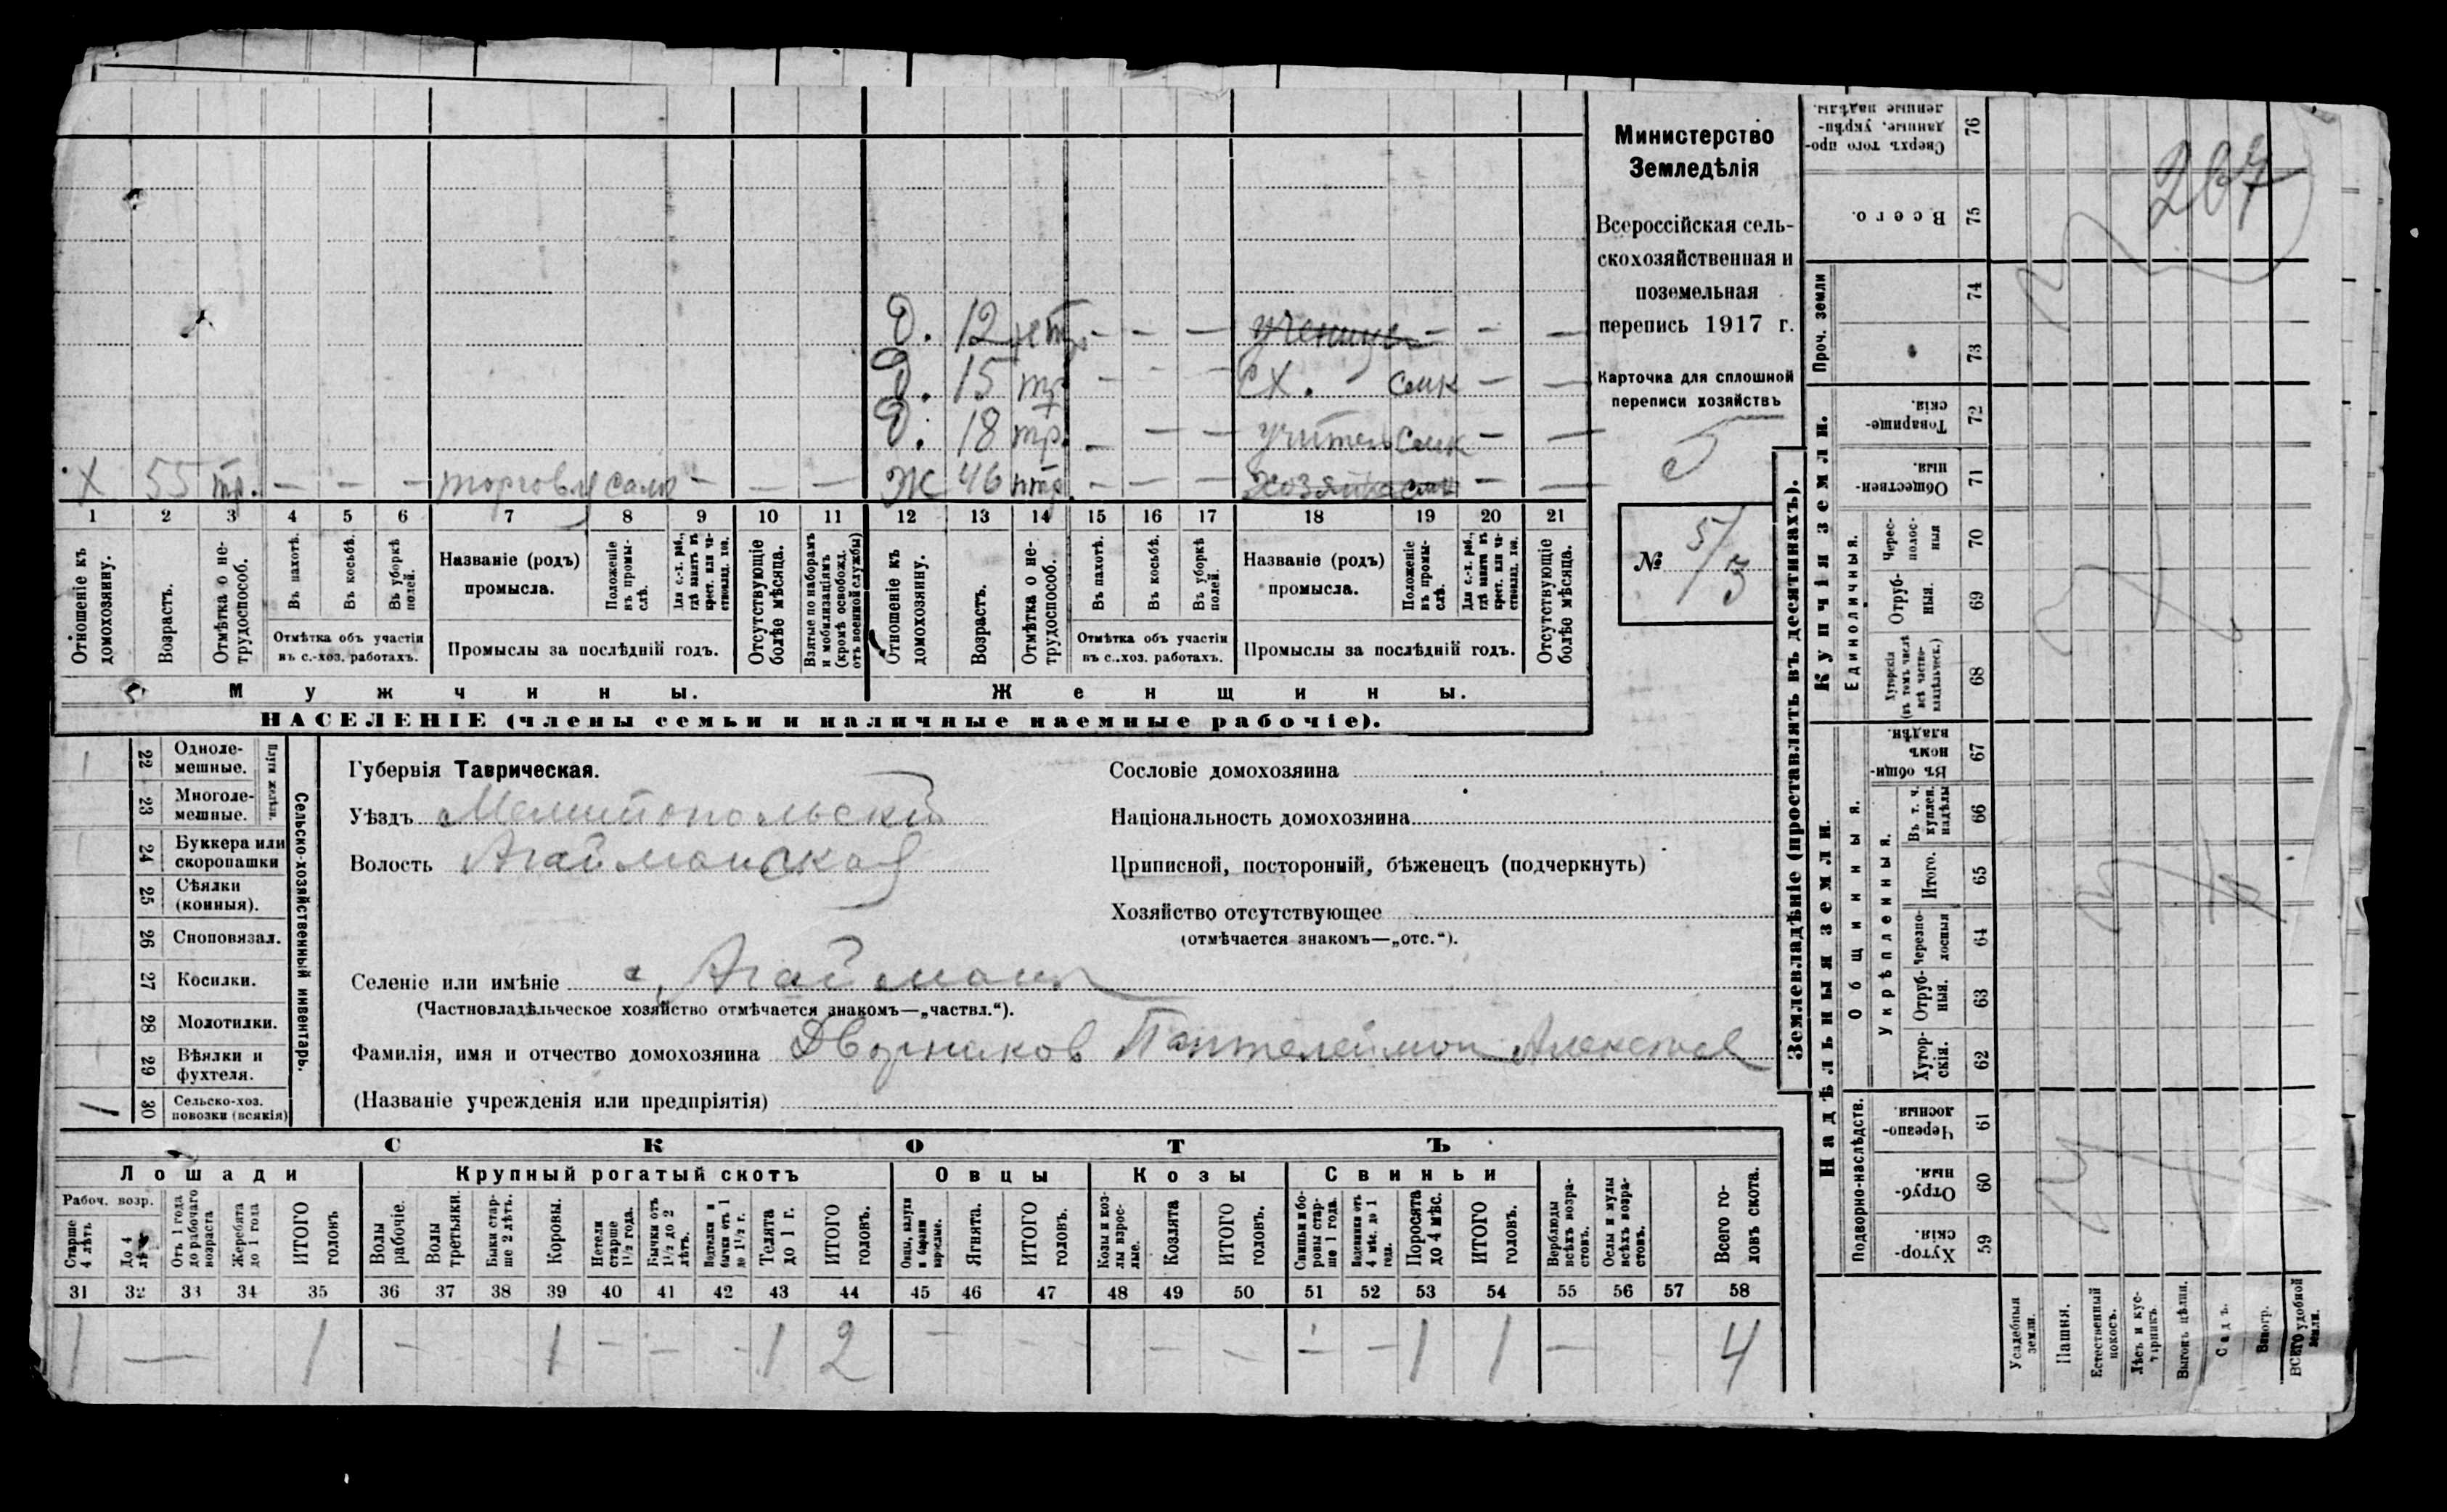 Министерство
Земледѣлія
Всероссійская сель-
скохозяйственная и
поземельная
перепись 1917 г.
Карточка для сплошной
переписи хозяйствъ
5
№ 5/3
207
Д. 12 нетр. - - - ученица - - -
Д. 15 тр. - - - сх. - самк - -
Д. 18 тр. - - - учитель самк - -
Х 55 тр. - - - торговля сам - - - Ж 46 нтр. - - - хозяйка - -
1 2 3 4 5 6 7 8 9 10 11 12 13 14 15 16 17 18 19 20 21
Отношеніе къ домохозяину.
Возрастъ.
Отмѣтка о не-трудоспособ.
Въ пахотѣ.
Въ косьбѣ.
Въ уборкѣ полей.
Отмѣтка объ участіи въ с.-хоз. работахъ.
Названіе (родъ) промысла.
Положеніе въ промы-слѣ.
Для с.-х. раб., гдѣ занятъ въ крест. или ча-стновлад. хоз.
Промыслы за послѣдній годъ.
Отсутствующіе болѣе мѣсяца.
Взятые по наборамъ и мобилизаціямъ (кромѣ освобожд. отъ военной службы)
Отношеніе къ домохозяину.
Возрастъ.
Отмѣтка о не-трудоспособ.
Въ пахотѣ.
Въ косьбѣ.
Въ уборкѣ полей.
Отмѣтка объ участіи въ с.-хоз. работахъ.
Названіе (родъ) промысла.
Положеніе въ промы-слѣ.
Для с.-х. раб., гдѣ занятъ въ крест. или ча-стновлад. хоз.
Промыслы за послѣдній годъ.
Отсутствующіе болѣе мѣсяца.
Мужчины. Женщины.
НАСЕЛЕНІЕ (члены семьи и наличные наемные рабочіе).
Сельско-хозяйственный инвентарь.
Плуги желѣзн.
22 Одноле-мешные.
23 Многоле-мешные.
24 Буккера или скоропашки
25 Сѣялки (конныя).
26 Сноповязал.
27 Косилки.
28 Молотилки.
29 Вѣялки и фухтеля.
1 30 Сельско-хоз. повозки (всякія)
Губернія Таврическая.
Уѣздъ Мелитопольскій
Волость Агайманская
Селеніе или имѣніе с. Агайманъ
(Частновладѣльческое хозяйство отмѣчается знакомъ—„частвл.“).
Фамилія, имя и отчество домохозяина Дворников Пантелеймон Алексѣев
(Названіе учрежденія или предпріятія)
Сословіе домохозяина
Національность домохозяина
Приписной, посторонній, бѣженецъ (подчеркнуть)
Хозяйство отсутствующее
(отмѣчается знакомъ—„отс.“).
СКОТЪ
Лошади Крупный рогатый скотъ Овцы Козы Свиньи
Рабоч. возр.
Старше 4 лѣтъ
До 4 лѣтъ
Отъ 1 года до рабочаго возраста
Жеребята до 1 года
ИТОГО головъ
Волы рабочіе.
Волы третьяки.
Быки стар-ше 2 лѣтъ.
Коровы.
Нетели старше 1½ года.
Бычки отъ 1½ до 2 лѣтъ.
Подтелки и бычки отъ 1 до 1½ г.
Телята до 1 г.
ИТОГО головъ.
Овцы, валухи и бараны взрослые.
Ягнята.
ИТОГО головъ.
Козы и коз-лы взрос-лые.
Козлята
ИТОГО головъ.
Свиньи и бо-ровы стар-ше 1 года.
Подсвинки отъ 4 мѣс. до 1 года.
Поросята до 4 мѣс.
ИТОГО головъ.
Верблюды всѣхъ возра-стовъ.
Ослы и мулы всѣхъ возра-стовъ.
Всего го-ловъ скота.
31 32 33 34 35 36 37 38 39 40 41 42 43 44 45 46 47 48 49 50 51 52 53 54 55 56 57 58
1 — 1 - - 1 - - - 1 2 - - - - - - - 1 1 - - 4
Землевладѣніе (проставлять въ десятинахъ).
Надѣльныя земли. Купчія земли. Проч. земли
Подворно-наслѣдств.
Общинныя.
Укрѣпленныя.
Единоличныя.
Хутор-скія. 59
Отруб-ныя. 60
Черезпо-лосныя. 61
Хутор-скія. 62
Отруб-ныя. 63
Черезпо-лосныя 64
Итого. 65
Въ т. ч. куплен. надѣлы 66
Въ общин-номъ владѣн. 67
Хуторскія (въ томъ числѣ всѣ частно-владѣльческ.) 68
Отруб-ныя. 69
Черес-полос-ныя 70
Обществен-ныя. 71
Товарище-скія. 72
73
74
Всего. 75
Сверхъ того про-данные, укрѣп-ленные надѣлы. 76
Усадебныя земли.
Пашня.
Естественный покосъ.
Лѣсъ и кус-тарникъ.
Выгонъ цѣлин.
Садъ.
Виногр.
ВСЕГО удобной земли.